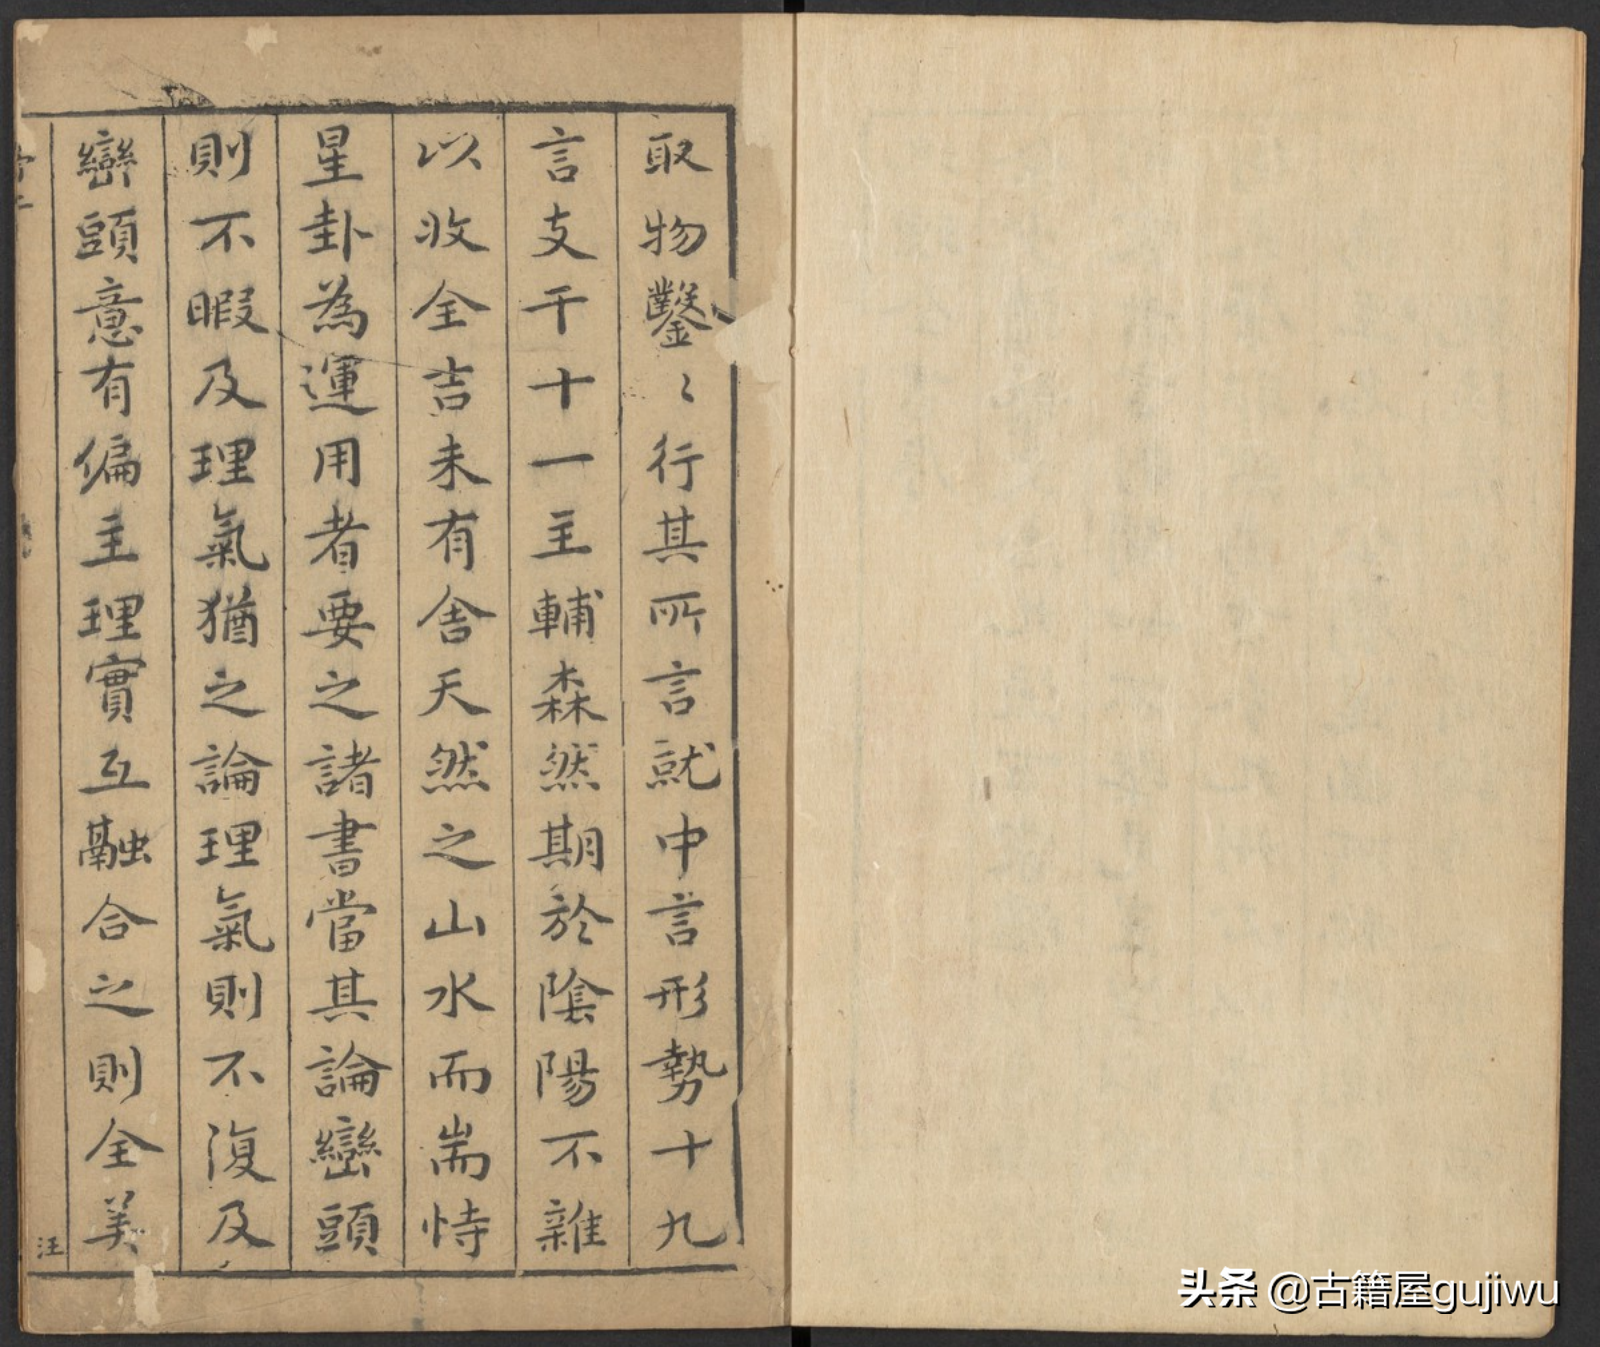 取物鑿〻行其所言就中言形勢十九
言支干十一主輔森然期於陰陽不雜
以收全吉未有舍天然之山水而耑恃
星卦為運用者要之諸書當其論巒頭
則不暇及理氣猶之論理氣則不復及
巒頭意有偏主理實互融合之則全美
汪
头条 @古籍屋gujiwu